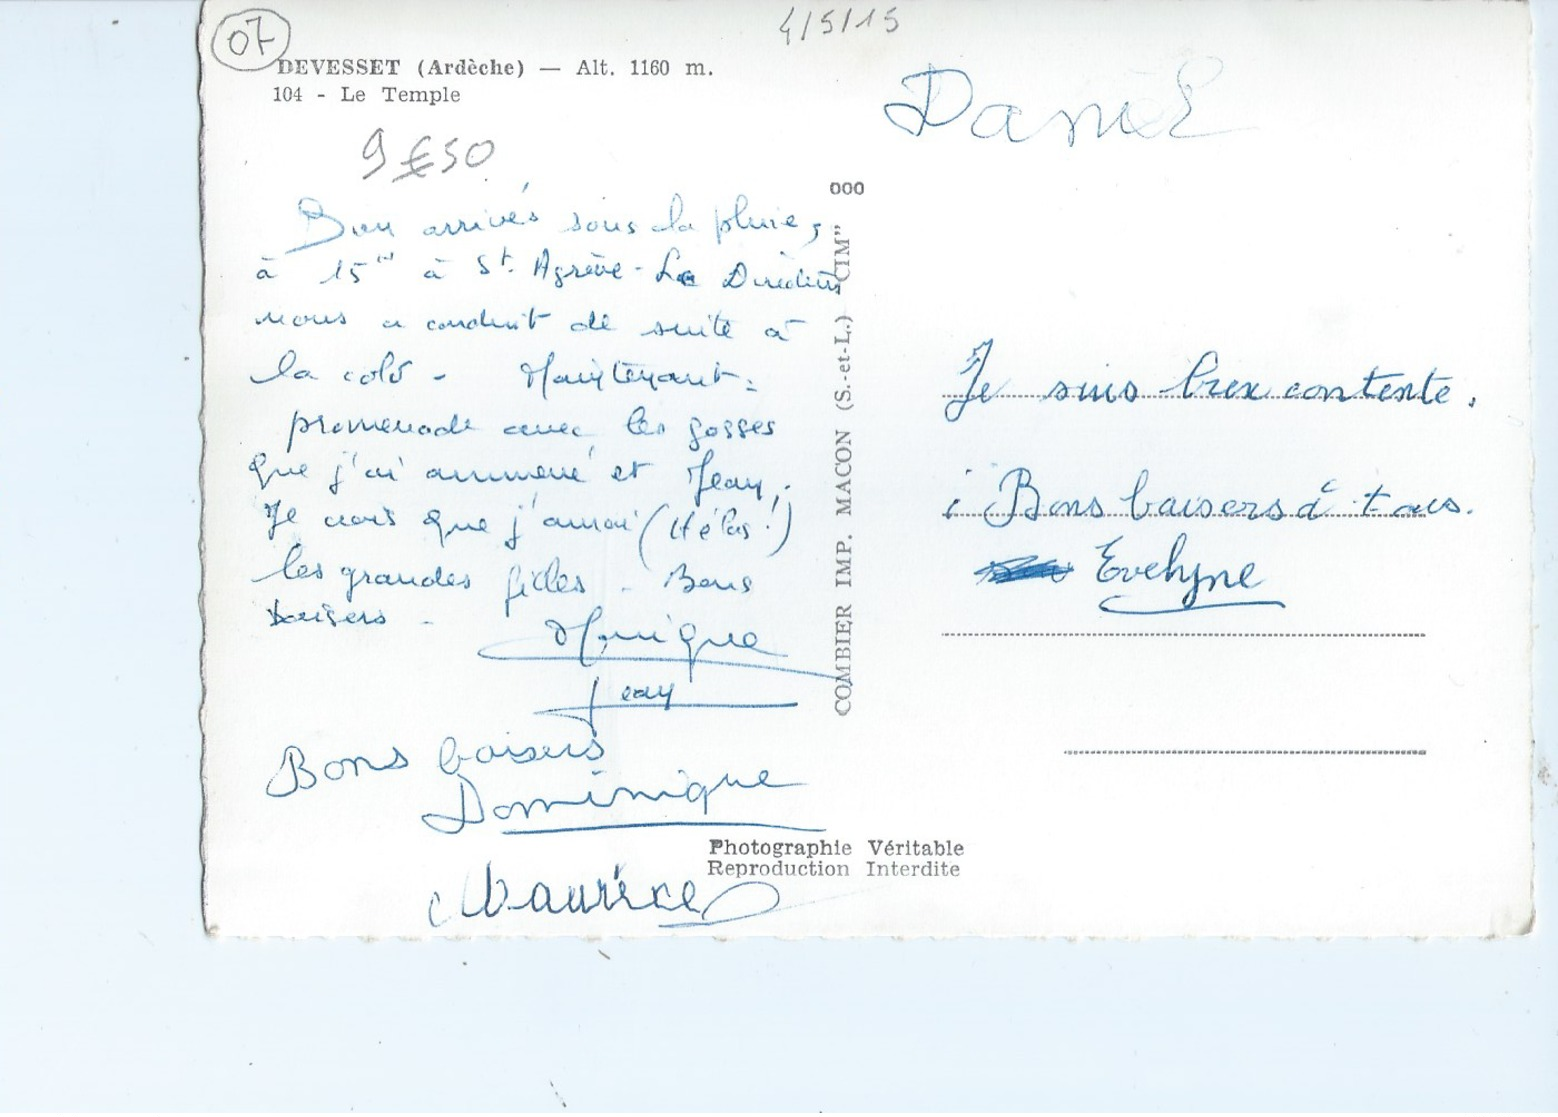 07
4/5/15
DEVESSET (Ardèche) — Alt. 1160 m.
104 - Le Temple
9 €50
Bien arrivés sous la pluie,
à 15 à St. Agrève - Le Directeur
nous a conduit de suite à
la colo - Maintenant :
promenade avec les gosses
que j'ai ammené et Jean.
Je crois que j'aurai (Hélas !)
les grandes filles - Bons
baisers -
Monique
Jean
Bons baisers
Dominique
Maurice
000
COMBIER IMP. MACON (S.-et-L.) "CIM"
Photographie Véritable
Reproduction Interdite
Daniel
Je suis contente.
Bons baisers à tous.
Evelyne